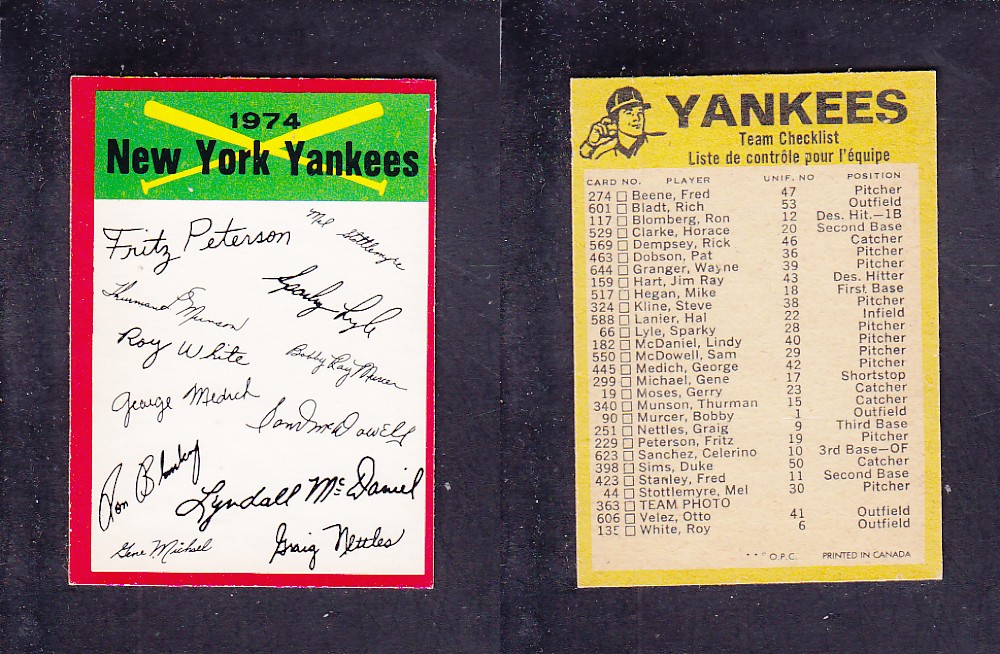 1974
New York Yankees
Fritz Peterson
Mel Stottlemyre
Sparky Lyle
Thurman Munson
Roy White
Bobby Ray Murcer
George Medich
Sam McDowell
Ron Blomberg
Lyndall McDaniel
Gene Michael
Graig Nettles
YANKEES
Team Checklist
Liste de contrôle pour l'équipe
CARD NO. PLAYER UNIF. NO POSITION
274 Beene, Fred 47 Pitcher
601 Bladt, Rich 53 Outfield
117 Blomberg, Ron 12 Des. Hit.—1B
529 Clarke, Horace 20 Second Base
569 Dempsey, Rick 46 Catcher
463 Dobson, Pat 36 Pitcher
644 Granger, Wayne 39 Pitcher
159 Hart, Jim Ray 43 Des. Hitter
517 Hegan, Mike 18 First Base
324 Kline, Steve 38 Pitcher
588 Lanier, Hal 22 Infield
66 Lyle, Sparky 28 Pitcher
182 McDaniel, Lindy 40 Pitcher
550 McDowell, Sam 29 Pitcher
445 Medich, George 42 Pitcher
299 Michael, Gene 17 Shortstop
19 Moses, Gerry 23 Catcher
340 Munson, Thurman 15 Catcher
90 Murcer, Bobby 1 Outfield
251 Nettles, Graig 9 Third Base
229 Peterson, Fritz 19 Pitcher
623 Sanchez, Celerino 10 3rd Base—OF
398 Sims, Duke 50 Catcher
423 Stanley, Fred 11 Second Base
44 Stottlemyre, Mel 30 Pitcher
363 TEAM PHOTO
606 Velez, Otto 41 Outfield
135 White, Roy 6 Outfield
**O.P.C. PRINTED IN CANADA